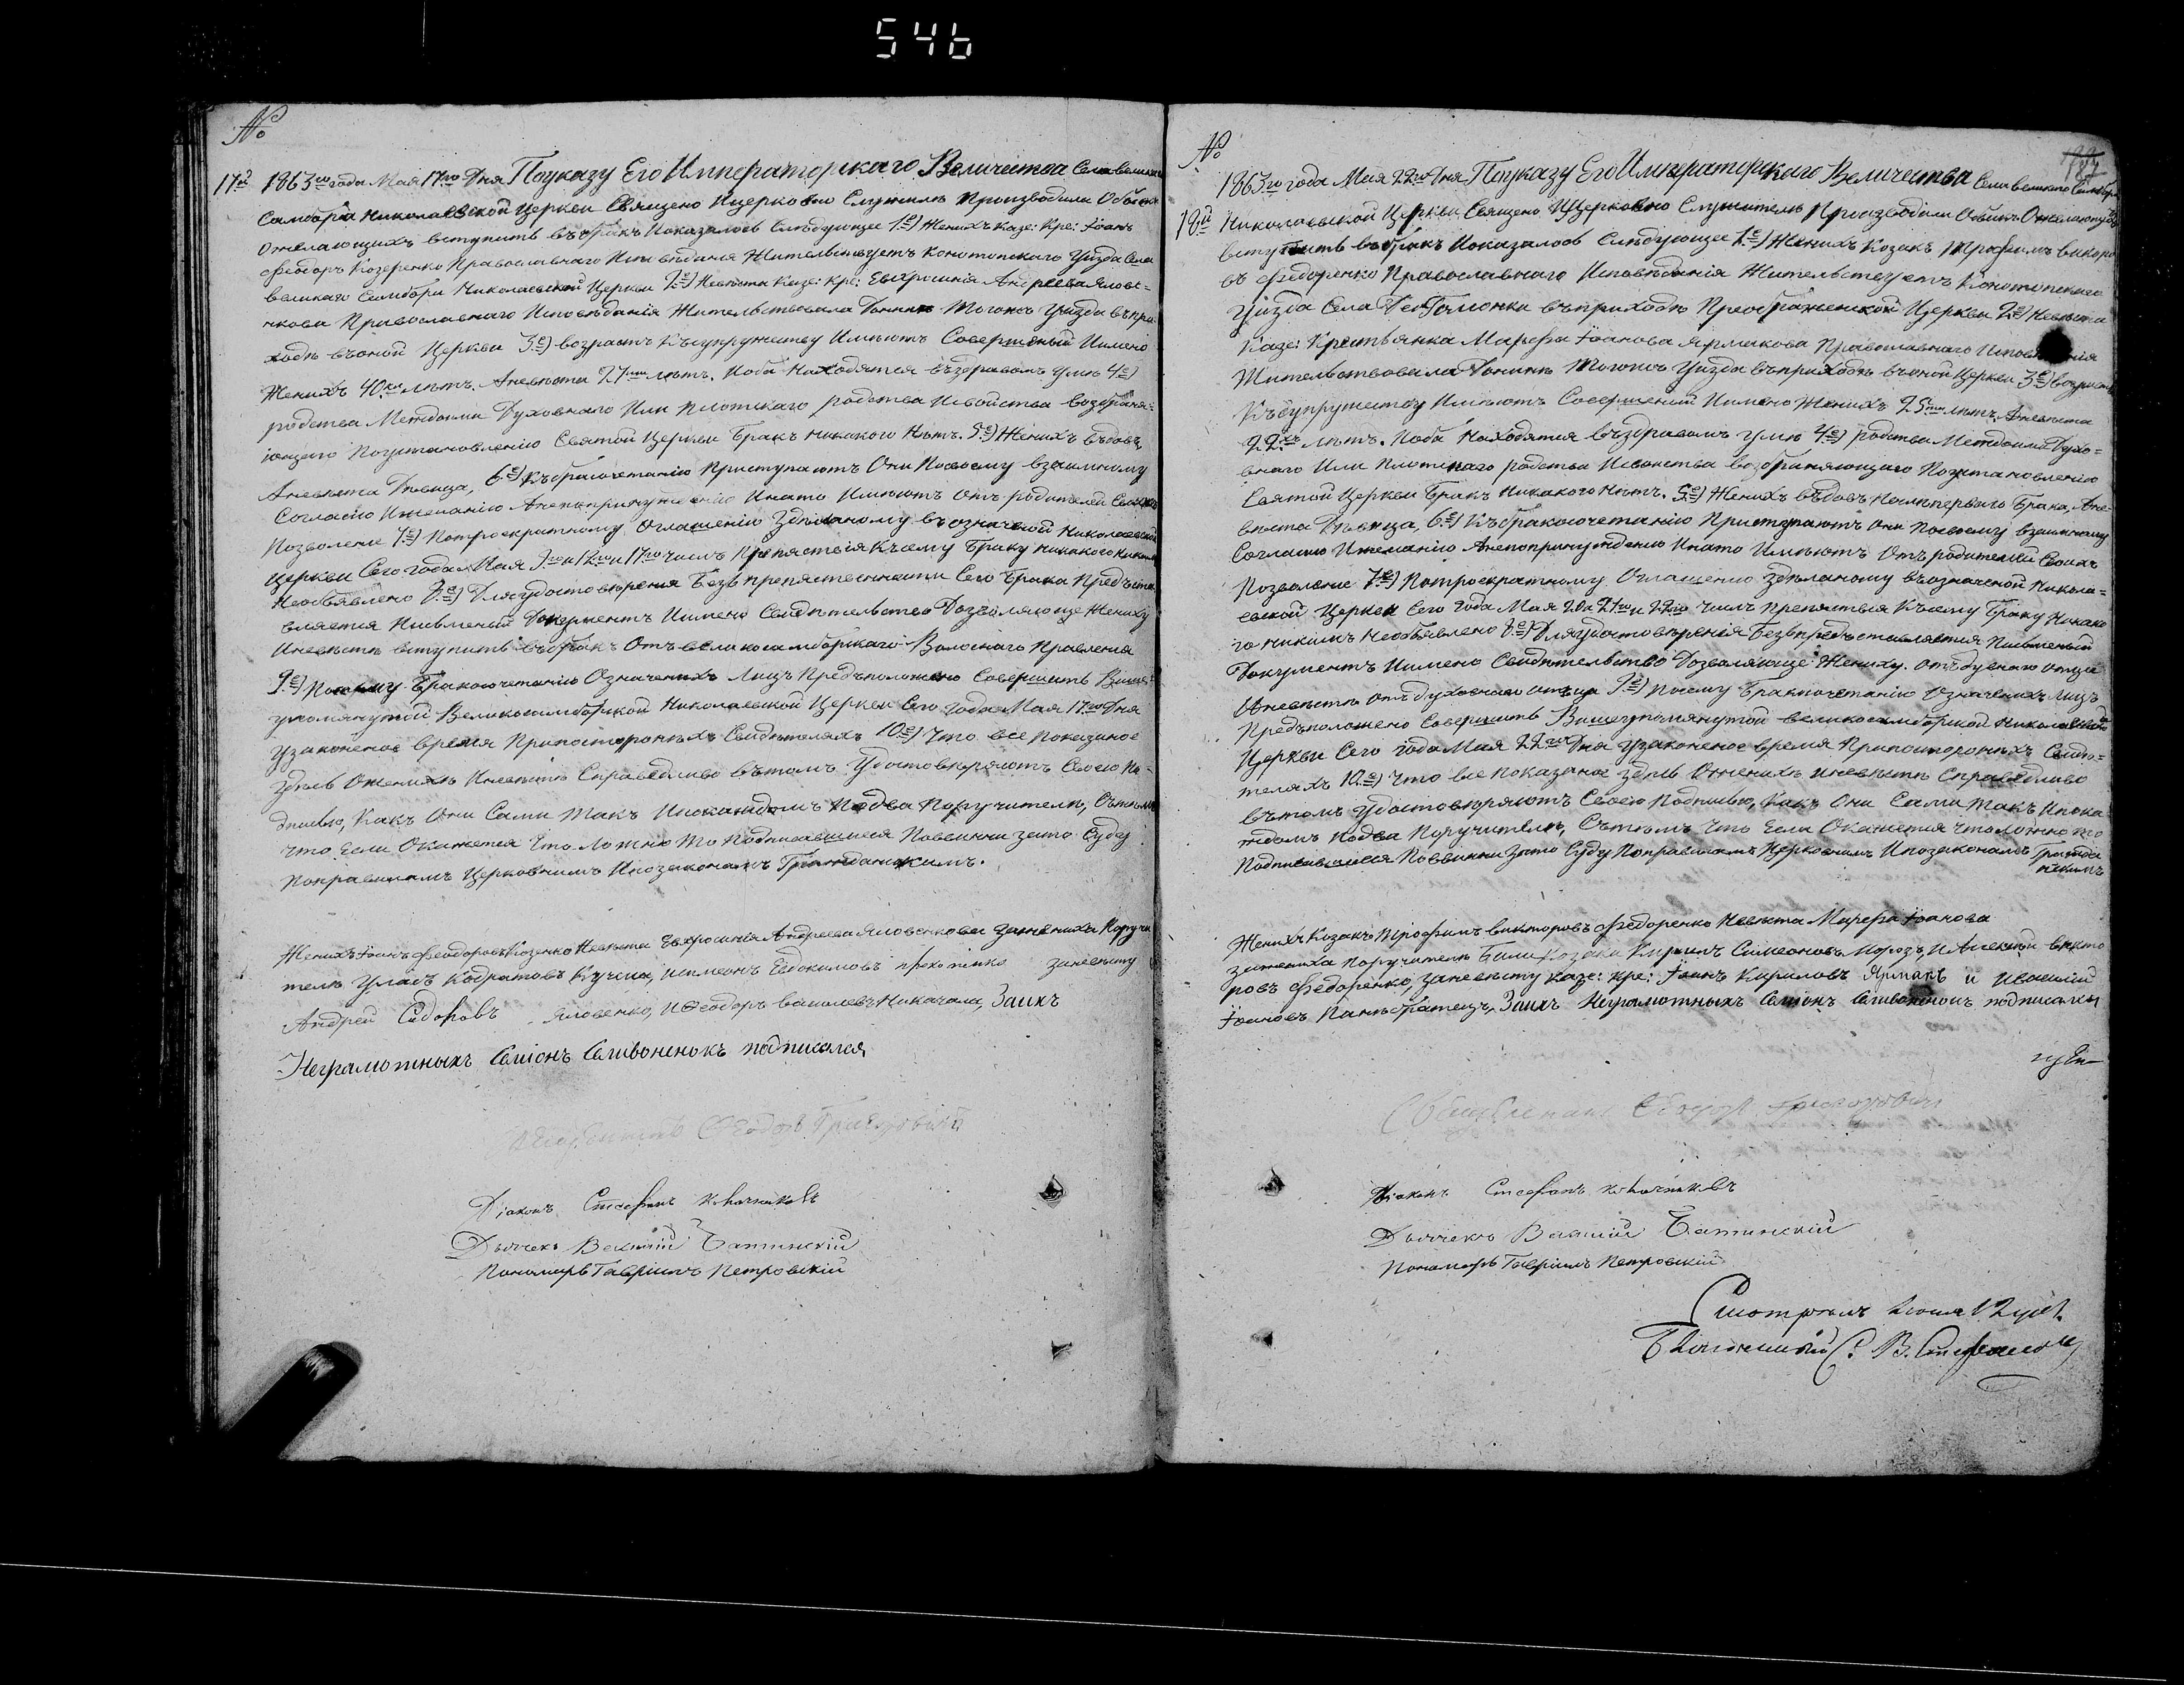 546
№
17й 1863го года Мая 17го Дня Поуказу Его Императорскаго Величества Села великаго
Самбора Николаевской Церкви Священо Ицерковно Служители Производили Обыскъ
Ожелающихъ вступить въбракъ Показалось Слѣдующее 1е) Женихъ Казе: Кре: Іоанъ
Феодоръ Козеренко Православнаго Исповѣданія Жительствуетъ Конотопскаго Уѣзда Села
великаго Самбора Николаевской Церкви 2е) Невѣста Казе: Кре: Евфросинія Андреева Яловен-
кова Православнаго Исповѣданія Жительствовала Донинѣ Тогожъ Уѣзда въпри-
ходѣ въоной Церкви 3е) возрастъ Късупружеству Имѣютъ Совершеный Имено
Женихъ 40ка лѣтъ. Аневѣста 27ми лѣтъ. Иоба Находятся въздравомъ умѣ 4е)
родства Междоими Духовнаго Или Плотскаго родства Исвойства возбраня-
ющаго Поустановленію Святой Церкви Бракъ никакого Нѣтъ. 5е) Женихъ въдовъ,
Аневѣста Дѣвица, 6е) Къбракосочетанію Приступаютъ Они Посвоему взаимному
Согласію Ижеланію Анепопринужденію Инато Имѣютъ отъ родителей Своихъ
Позволение 7е) Потроекратному Оглашенію Здѣланому въозначеной Николаевской
Церкви Сего года Мая 9го 12го и 17го числъ Препятствія Къему Браку никакого Никѣмъ
Необъявлено 8е) Для удостовѣренія Безъ препятственности Сего Брака Предъста-
вляется Письменый Документъ Имено Свидѣтельство Дозволяюще Жениху
Иневѣстѣ вступить въбракъ Отъ великосамборскаго Волоснаго Правленія
9е) Посему Бракосочетанію Означеныхъ Лицъ Предъположено Совершить Више-
упомянутой Великосамборской Николаевской Церкви Сего года Мая 17го Дня
узаконеное время Припостороныхъ Свидѣтеляхъ 10е) Что все Показаное
здѣсь Оженихѣ Иневѣстѣ Справедливо вътомъ Удостовѣряютъ Своею По-
дписью, Какъ Они Сами Такъ Ипокаждомъ Подва Поручителя, Сътѣмъ
что Если Окажется Что Ложно То Подписавшиеся Повинни зато Суду
Поправиламъ Церковнимъ Ипозаконамъ Гражданскимъ.
Женихъ Іоанъ Феодоровъ Козенко Невѣста Евфросинія Андреева Яловенкова Зажениха Поручи
тели Уласъ Кодратовъ Кучма, исимеонъ Евдокимовъ заневѣсту
Андрей Сидоровъ Яловенко, и Феодоръ васильевъ Заихъ
Неграмотныхъ Семіонъ Сливоненокъ подписался
Діаконъ Стефанъ
Дьячекъ Василій
Пономарь Гавріилъ Петровскій
№
187
1863го года Мая 22го Дня Поуказу Его Императорскаго Величества Села великаго Самбора
18й Николаевской Церкви Священо Ицерковно Служители Производили Обыскъ Ожелающихъ
вступить въбракъ Показалось Слѣдующее 1е) Женихъ Козакъ Трофимъ викторо
въ Федоренко Православнаго Исповѣданія Жительствуетъ Конотопскаго
Уѣзда Села въприходѣ Преображенской Церкви 2е) Невѣста
Казе: Крестьянка Марефа Іоанова Ярмакова Православнаго
Жительствовала Донинѣ Тогожъ Уѣзда въприходѣ въоной Церкви 3е) возрастъ
Късупружеству Имѣютъ Совершеный Имено Женихъ 25ти лѣтъ, Аневѣста
22хъ лѣтъ. Иоба Находятся въздравомъ умѣ 4е) родства Междоими Духо-
внаго Или Плотскаго родства Исвойства возбраняющаго Поустановленію
Святой Церкви Бракъ Никакого Нѣтъ. 5е) Женихъ въдовъ Послѣпервого Брака, Ане-
вѣста Дѣвица, 6е) Къбракосочетанію Приступаютъ Они Посвоему взаимному
Согласію Ижеланію Анепопринужденію Инато Имѣютъ Отъ родителей Своихъ
Позволение 7е) Потроекратному Оглашенію здѣланому въозначеной Никола-
евской Церкви Сего Года Мая 20 21го и 22го числъ Препятствія Къему Браку Никако
го никѣмъ Необъявлено 8е) Для удостовѣренія Безъ предъставляется Письменый
Документъ Имено Свидѣтельство Дозволяюще Жениху отъ духнаго отца
Аневѣстѣ отъ духовнаго отца 9е) Посему Бракосочетанію Означеныхъ Лицъ
Предъположено Совершить Вишеупомянутой великосамборской Николаевской
Церкви Сего года Мая 22го Дня узаконеное время Припостороныхъ Свидѣ-
теляхъ 10е) Что все показаное здѣсь Оженихѣ иневѣстѣ Справедливо
вътомъ Удостовѣряютъ Своею Подписью, Какъ Они Сами такъ Ипока
ждомъ Подва Поручителя, Сътѣмъ Что Если Окажется Что ложно то
Подписавшиеся Повинни зато Суду Поправиламъ Церковнимъ Ипозаконамъ Гражда
нскимъ
Женихъ Козакъ Трофимъ викторовъ Федоренко Невѣста Марефа Іоанова
зажениха поручители Били Козаки Кирилъ Симеоновъ Морозъ, и Алексѣй викто
ровъ Федоренко, заневѣсту казе: кре: Іоанъ Кириловъ Ярмакъ и Ивасилій
Іоановъ Панибратецъ, Заихъ Неграмотныхъ Семіонъ Сливоненокъ подписался
Діаконъ Стефанъ
Дьячекъ Василій
Пономарь Гавріилъ Петровскій
Смотрѣлъ
Благочинный С. В.